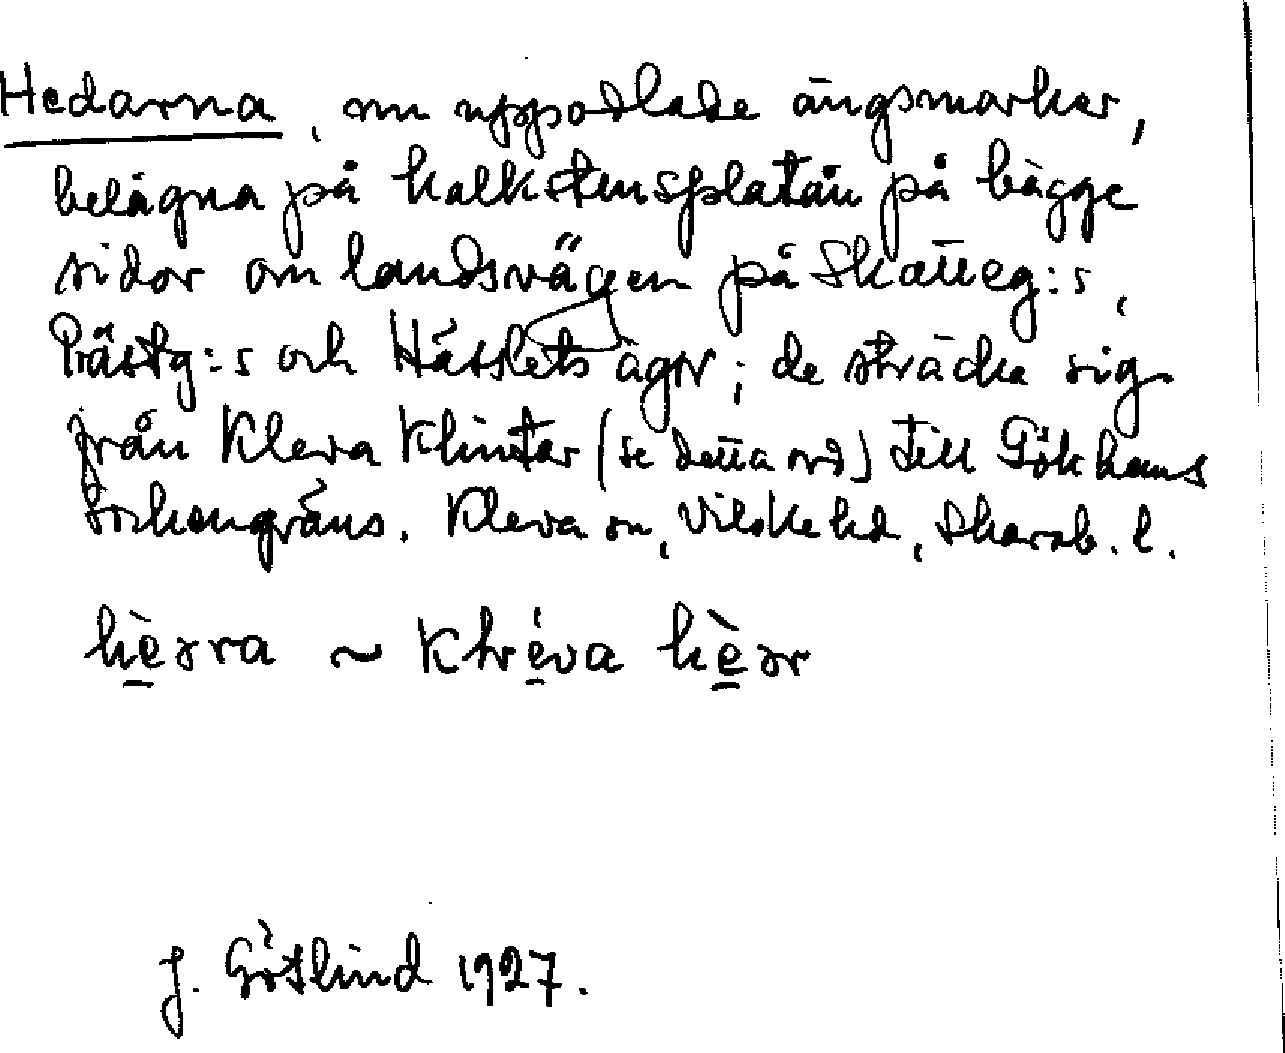 Hedarna, nu uppodlade ängsmarker,
belägna på kalkstensplatån på bägge
sidor om landsvägen på Skatteg:s,
Prästg:s och Hässlets ägor; de sträcka sig
från Kleva Klintar (se detta ord) till Gökhems
sockengräns. Kleva sn, Vilske hd, Skarab. l.
hè̱ərra ~ Klvé̱va hè̱ər
J. Götlind 1927.